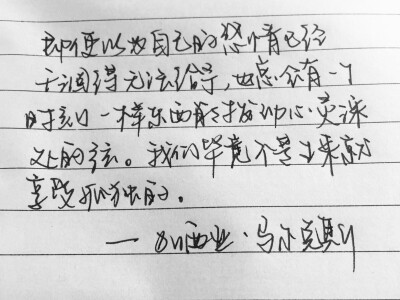 即便以为自己的感情已经
干涸得无法给予，也总会有一个
时刻一样东西能拨动心灵深
处的弦。我们毕竟不是生来就
享受孤独的。
——加西亚·马尔克斯